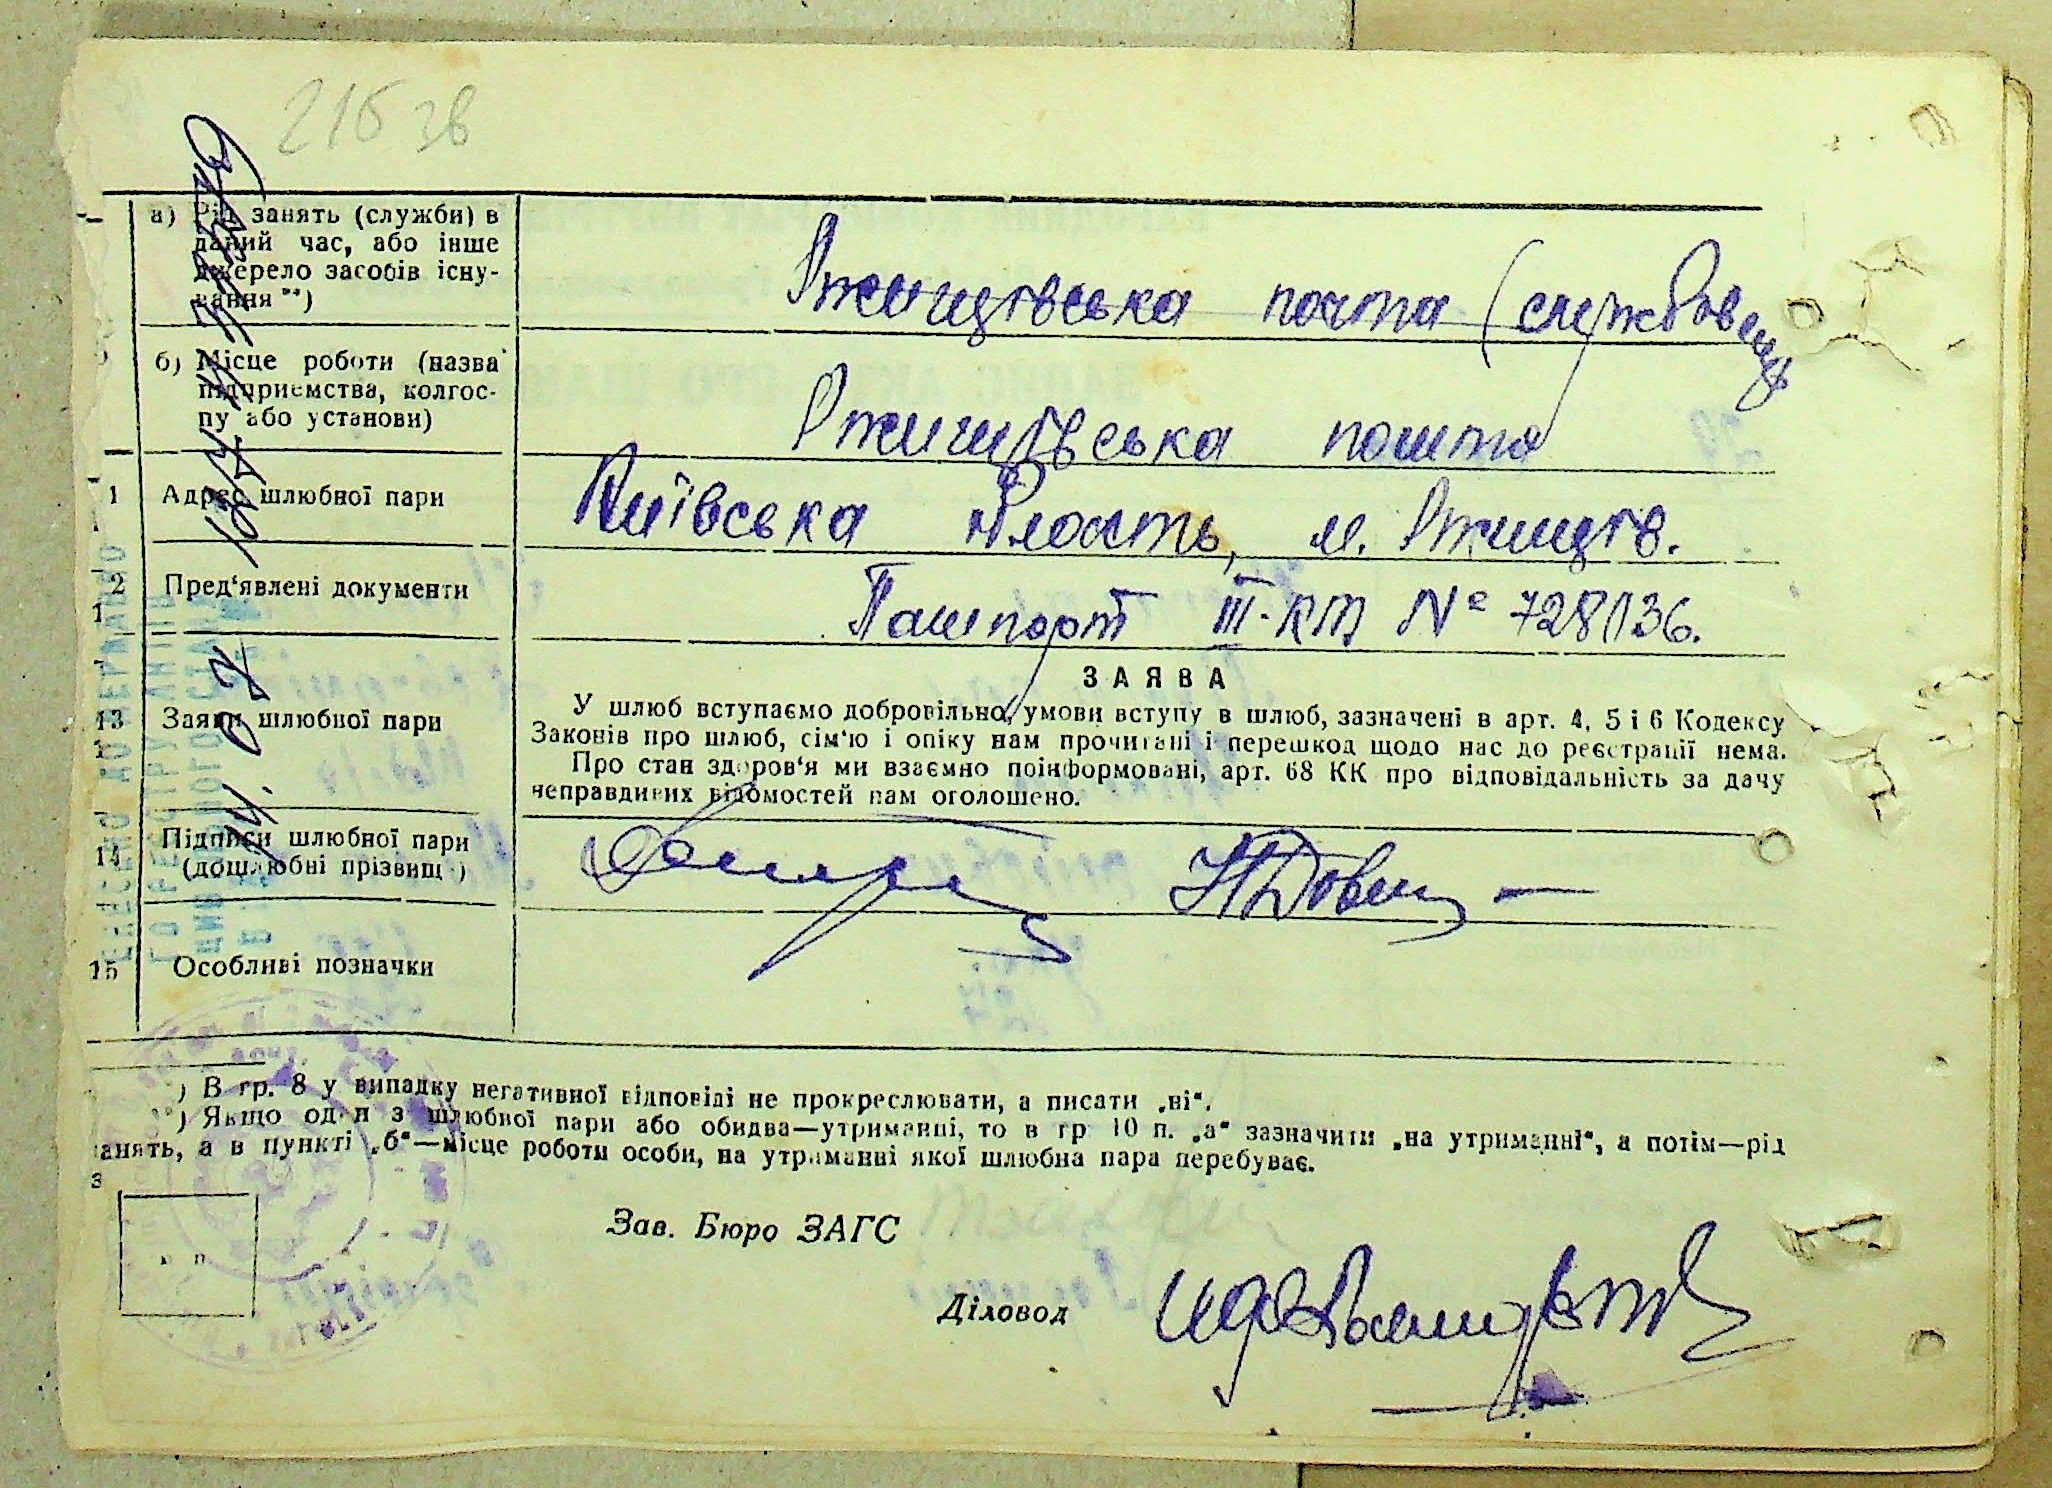 216 зв
а) Рід занять (служби) в
даний час, або інше
джерело засобів існу-
вання **)
Ржищівська почта (службовець
б) Місце роботи (назва
підприємства, колгос-
пу або установи)
Ржищівська пошта
1 Адрес шлюбної пари
Київська область, м. Ржищів.
2 Пред'явлені документи
Пашпорт III-КТ № 728136.
13 Заяви шлюбної пари
ЗАЯВА
У шлюб вступаємо добровільно, умови вступу в шлюб, зазначені в арт. 4, 5 і 6 Кодексу
Законів про шлюб, сім'ю і опіку нам прочитані і перешкод щодо нас до реєстрації нема.
Про стан здоров'я ми взаємно поінформовані, арт. 68 КК про відповідальність за дачу
неправдивих відомостей нам оголошено.
14 Підписи шлюбної пари
(дошлюбні прізвищ )
15 Особливі позначки
) В гр. 8 у випадку негативної відповіді не прокреслювати, а писати „ні“.
*) Якщо один з шлюбної пари або обидва—утриманці, то в гр 10 п. „а“ зазначити „на утриманні“, а потім—рід
занять, а в пункті „б“—місце роботи особи, на утриманні якої шлюбна пара перебуває.
Зав. Бюро ЗАГС
Діловод